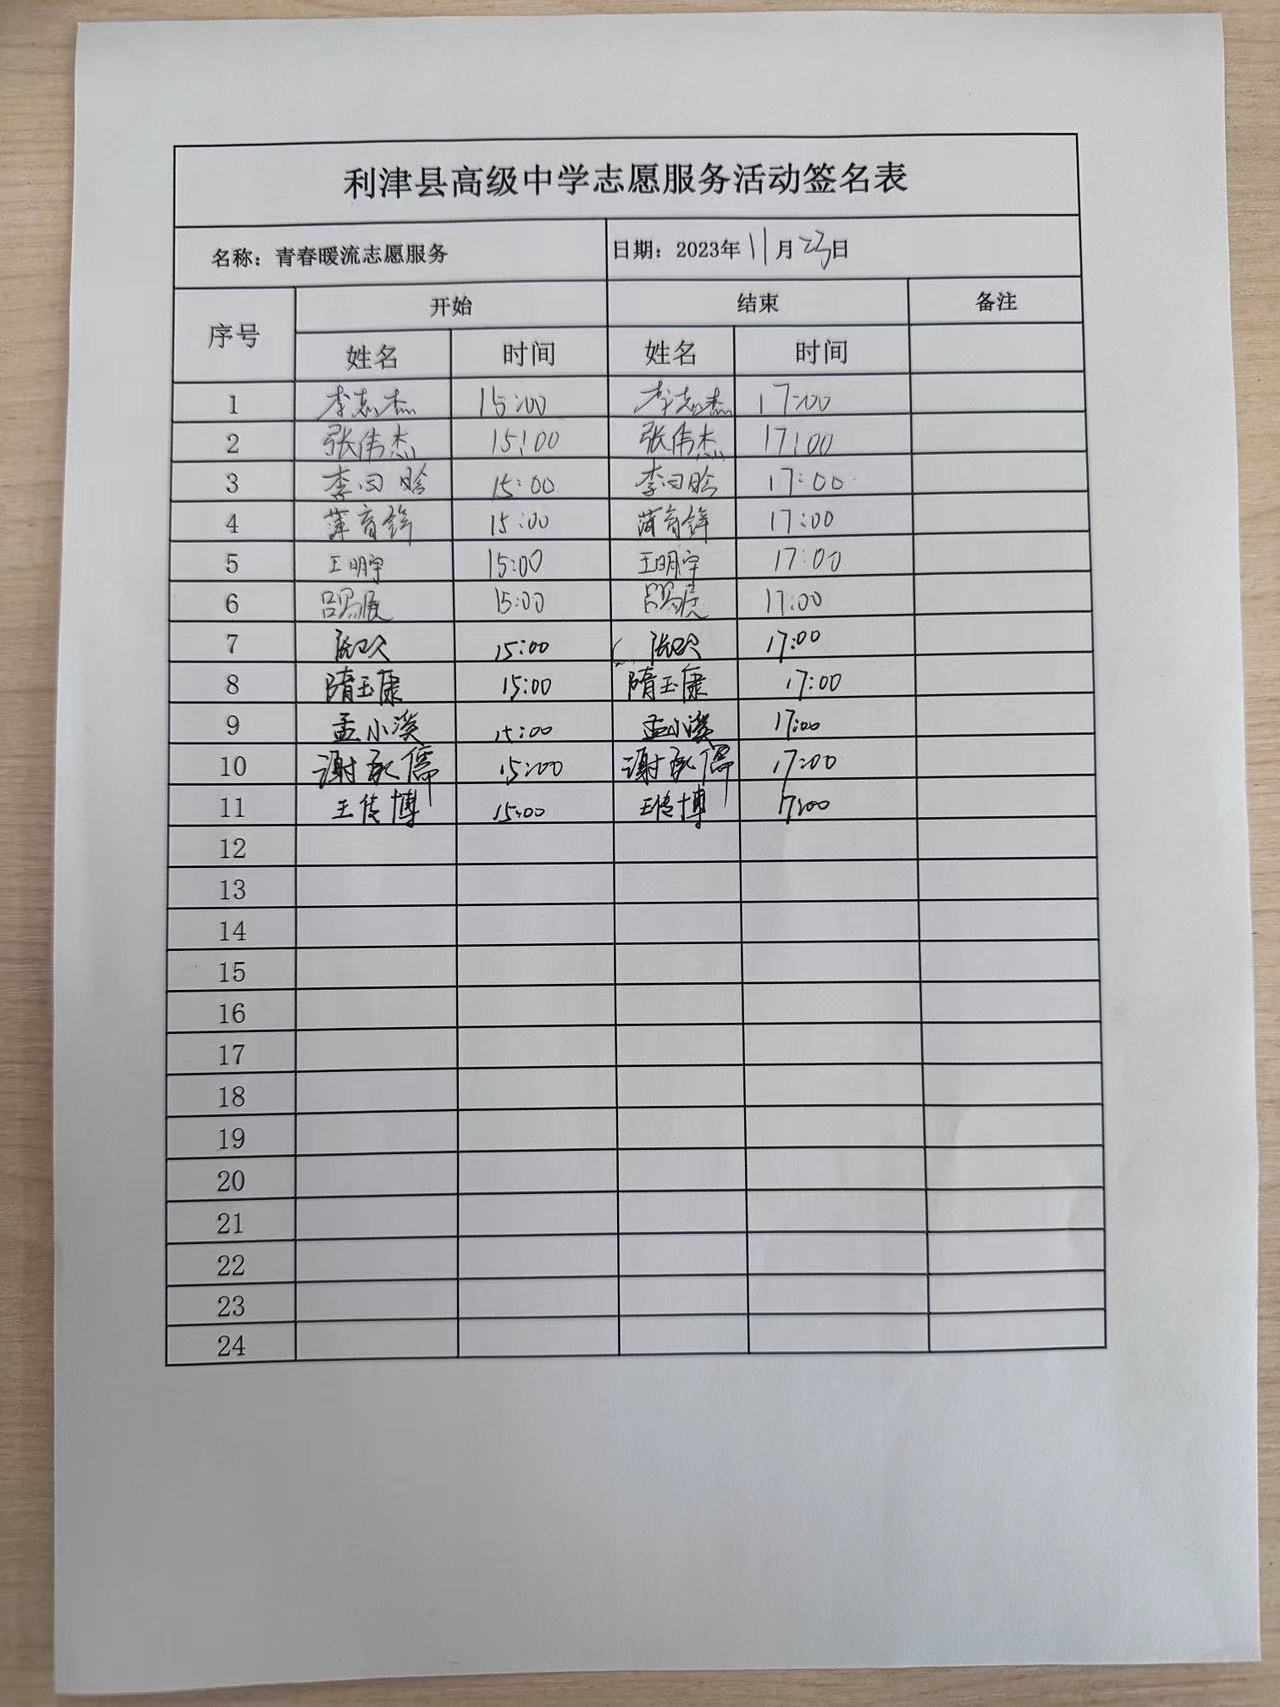 利津县高级中学志愿服务活动签名表
名称：青春暖流志愿服务 日期：2023年11月23日
序号 开始 结束 备注
姓名 时间 姓名 时间
1 李志杰 15:00 李志杰 17:00
2 张伟杰 15:00 张伟杰 17:00
3 李曰晗 15:00 李曰晗 17:00
4 薄育锋 15:00 薄育锋 17:00
5 王明宇 15:00 王明宇 17:00
6 吕 15:00 吕 17:00
7 张 15:00 张 17:00
8 隋玉康 15:00 隋玉康 17:00
9 孟小溪 15:00 孟小溪 17:00
10 谢承儒 15:00 谢承儒 17:00
11 王传博 15:00 王传博 17:00
12
13
14
15
16
17
18
19
20
21
22
23
24